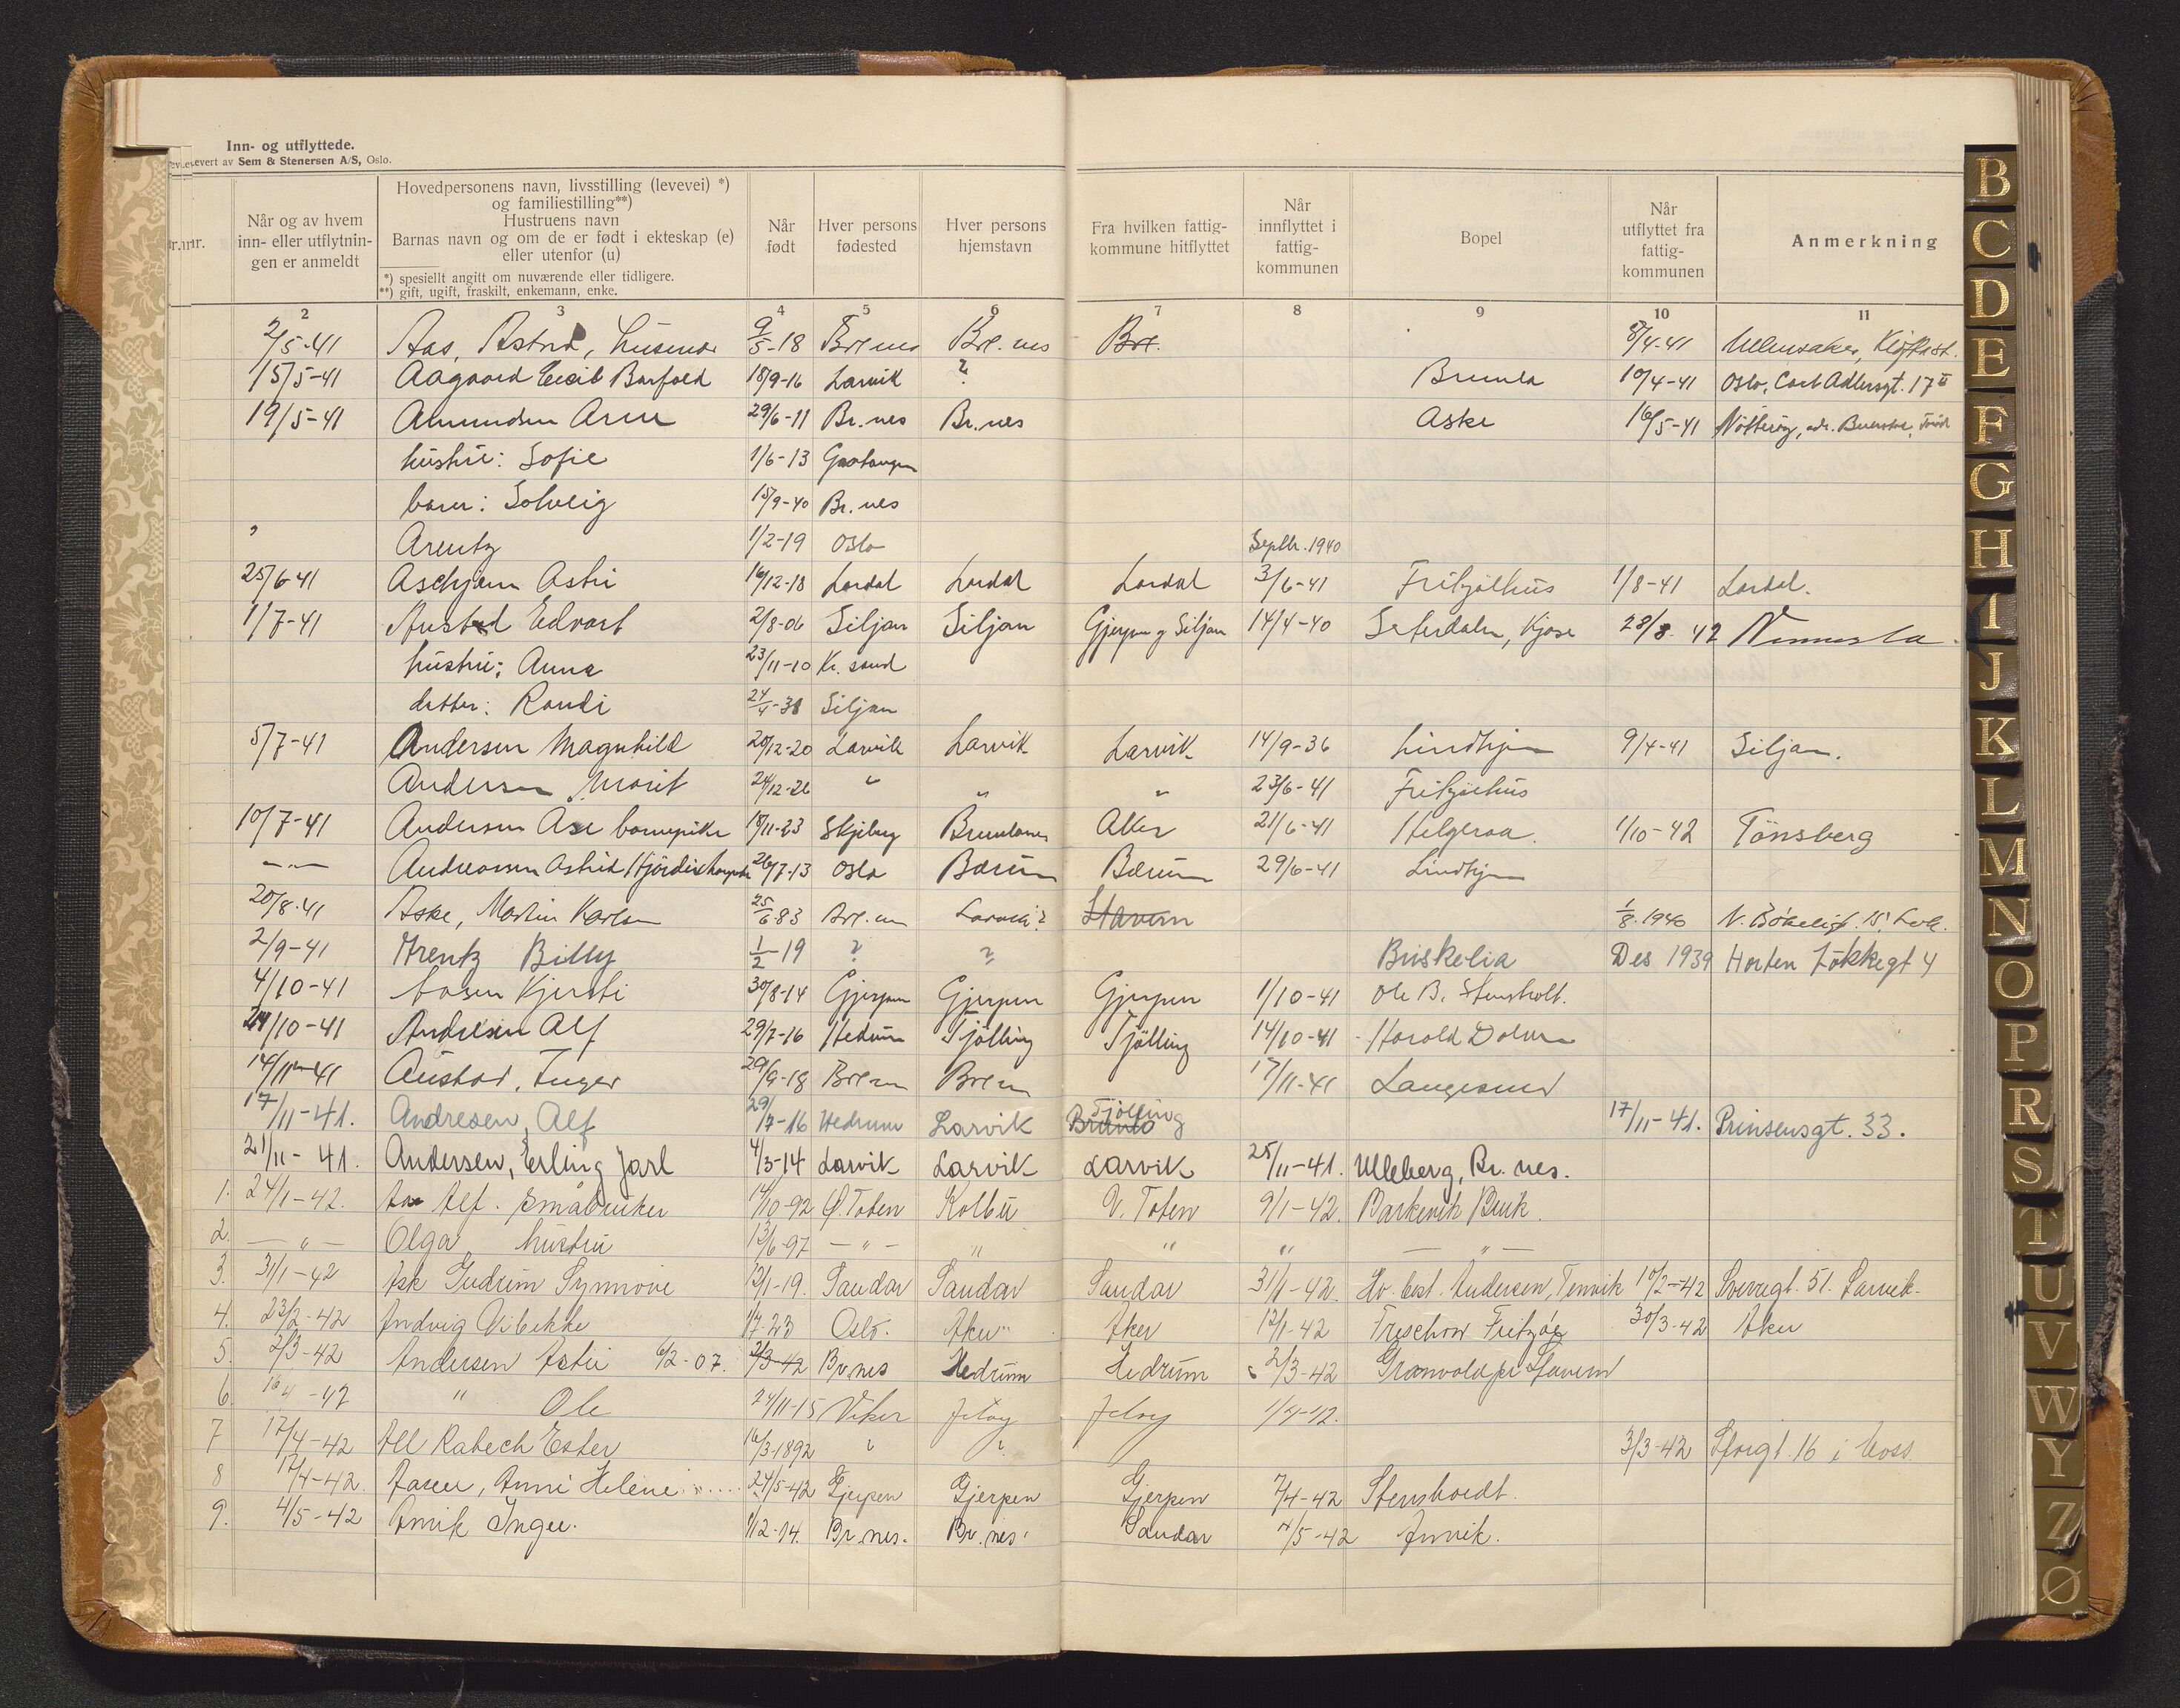 Inn- og utflyttede.
evert av Sem & Stenersen A/S, Oslo.
nr. Når og av hvem inn- eller utflytnin-gen er anmeldt
Hovedpersonens navn, livsstilling (levevei) *) og familiestilling**) Hustruens navn Barnas navn og om de er født i ekteskap (e) eller utenfor (u)
*) spesiellt angitt om nuværende eller tidligere.
**) gift, ugift, fraskilt, enkemann, enke.
Når født
Hver persons fødested
Hver persons hjemstavn
Fra hvilken fattig-kommune hitflyttet
Når innflyttet i fattig-kommunen
Bopel
Når utflyttet fra fattig-kommunen
Anmerkning
2 3 4 5 6 7 8 9 10 11
2/5-41 Aas, Astrid, 9/5-18 Br.nes Br.nes Br. 8/4-41
15/5-41 Aagaard Barfoed 18/9-16 Larvik ? Brunla 10/4-41 Oslo, Carl Adlersgt. 17 II
19/5-41 Amundsen Arne 29/6-11 Br.nes Br.nes Aske 16/5-41 Nötteröy,
hustru: Sofie 1/6-13
barn: Solveig 15/9-40 Br.nes
" Arentz 1/2-19 Oslo Septbr. 1940
25/6-41 Aschjem Astri 16/12-18 Lardal Lardal Lardal 3/6-41 Fritzöehus 1/8-41 Lardal.
1/7-41 Austad Edvart 2/8-06 Siljan Siljan Gjerpen og Siljan 14/4-40 Seterdalen, Kjose 28/8-42
hustru: Anna 23/11-10 Kr. sand
datter: Randi 24/4-38 Siljan
5/7-41 Andersen Magnhild 20/12-20 Larvik Larvik Larvik 14/9-36 Lindhjem 9/4-41 Siljan.
Andersen Marit 24/12-26 " " " 23/6-41 Fritzöehus
10/7-41 Andersen Åse barnepike 18/11-23 Skjeberg Brunlanes Aker 21/6-41 Helgeroa. 1/10-42 Tönsberg
-"- Andreassen Astrid Hjördis 26/7-13 Oslo Bærum Bærum 29/6-41 Lindhjem
20/8-41 Aske, Martin Karlsen 25/6 83 Larvik? Stavern 1/8-1940
2/9-41 Arentz Billy 1/2-19 ? ? Briskelia Des 1939 Horten Løkkegt 4
4/10-41 Aasen Kjersti 30/8-14 Gjerpen Gjerpen Gjerpen 1/10-41 Ole B. Stensholt.
24/10-41 Andresen Alf 29/7-16 Hedrum Tjölling Tjölling 14/10-41 Harald Dolven
14/11-41 Austad, Inger 29/9-18 17/11-41 Langesund
17/11-41. Andresen, Alf 29/7-16 Hedrum Larvik Brunla Tjölling 17/11-41. Prinsensgt. 33.
21/11-41. Andersen, Erling Jarl 4/3-14 Larvik Larvik Larvik 25/11-41. Ulleberg, Br. nes.
1. 24/1-42. Aas Alf. småbruker 14/10-92 Ø. Toten Kolbu V. Toten 9/1-42. Barkevik Bruk.
2. -"- Olga hustru 13/6-97 -"- " " " -"-
3. 31/1-42 Ask Gudrun Synnøve 12/1-19. Sandar Sandar Sandar 31/1-42. Hv. best. Andersen, Tenvik 10/2-42 Sverregt. 51. Larvik.
4. 23/2-42 Andvig Vibekke 1/7-23 Oslo. Aker Aker 12/1-42 Treschow Fritzöe 30/3-42 Aker
5. 2/3-42 Andersen Astri 6/2-07. 2/3-42 Br.nes Hedrum Hedrum 2/3-42 Stavern
6. " Ole 24/11-15 Jeløy Jeløy
7 17/4-42 All Rabech Ester 16/3-1892 ? ? 3/3-42 Storgt. 16 i Moss
8 17/4-42. Aasen, Anne Helene 24/5-42 Gjerpen Gjerpen Gjerpen 7/4-42 Stensholdt.
9. 4/5-42 Anvik Inger. 1/12-14. Br.nes. Br.nes. Sandar 4/5-42 Anvik.
B
C
D
E
F
G
H
I
J
K
L
M
N
O
P
R
S
T
U
V
W
Y
Z
Ø